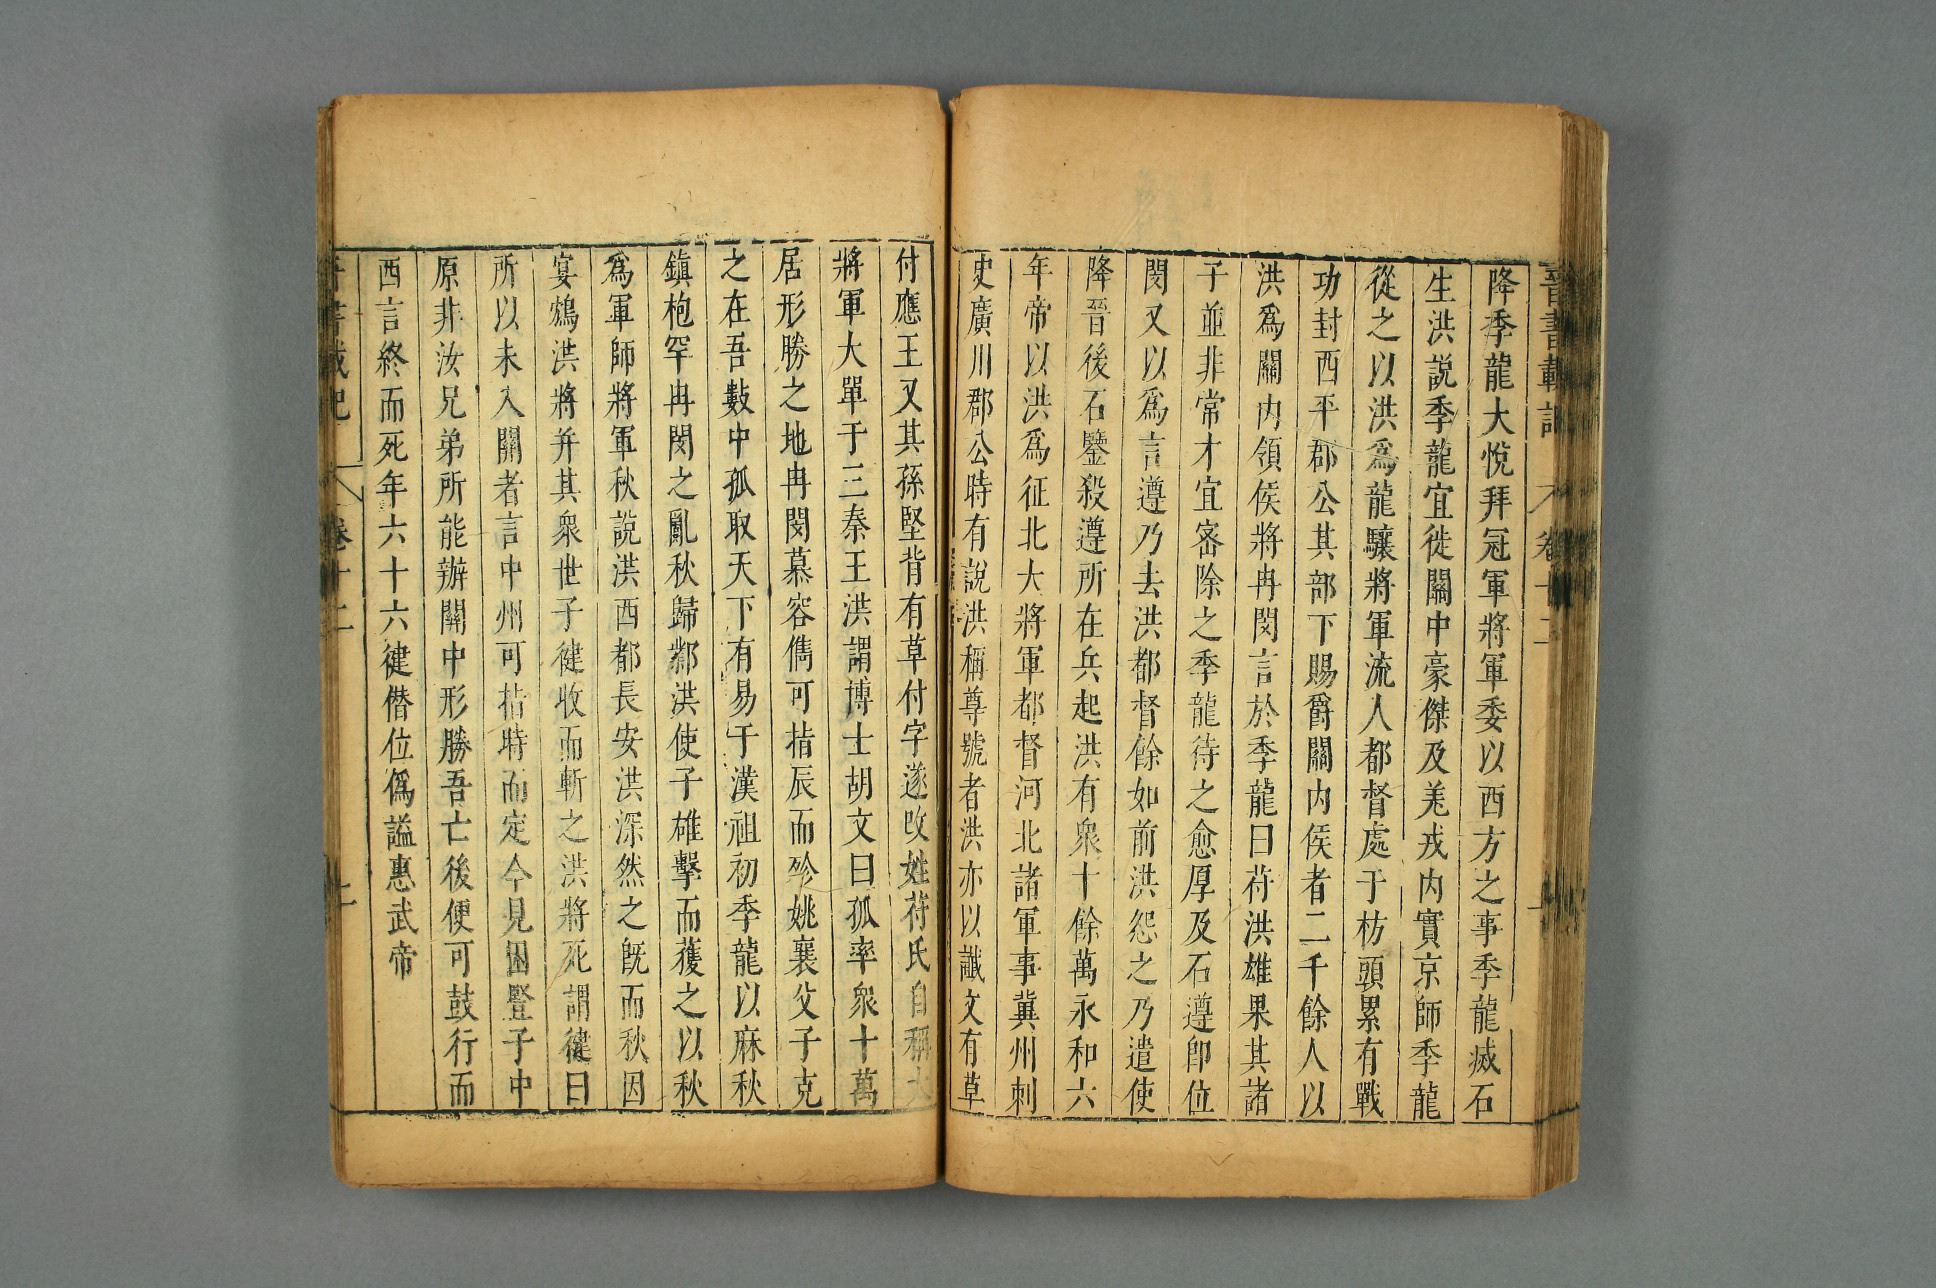 晉書載記 卷十二
降季龍大悅拜冠軍將軍委以西方之事季龍滅石
生洪說季龍宜徙關中豪傑及羌戎內實京師季龍
從之以洪爲龍驤將軍流人都督處于枋頭累有戰
功封西平郡公其部下賜爵關內侯者二千餘人以
洪爲關內領侯將冉閔言於季龍曰苻洪雄果其諸
子並非常才宜密除之季龍待之愈厚及石遵即位
閔又以爲言遵乃去洪都督餘如前洪怨之乃遣使
降晉後石鑒殺遵所在兵起洪有衆十餘萬永和六
年帝以洪爲征北大將軍都督河北諸軍事冀州刺
史廣川郡公時有說洪稱尊號者洪亦以讖文有草
付應王又其孫堅背有草付字遂改姓苻氏自稱大
將軍大單于三秦王洪謂博士胡文曰孤率衆十萬
居形勝之地冉閔慕容儁可指辰而殄姚襄父子克
之在吾數中孤取天下有易于漢祖初季龍以麻秋
鎮枹罕冉閔之亂秋歸鄴洪使子雄擊而獲之以秋
爲軍師將軍秋說洪西都長安洪深然之既而秋因
宴鴆洪將并其衆世子健收而斬之洪將死謂健曰
所以未入關者言中州可指時而定今見困豎子中
原非汝兄弟所能辦關中形勝吾亡後便可鼓行而
西言終而死年六十六健僭位僞謚惠武帝
晉書載記 卷十二